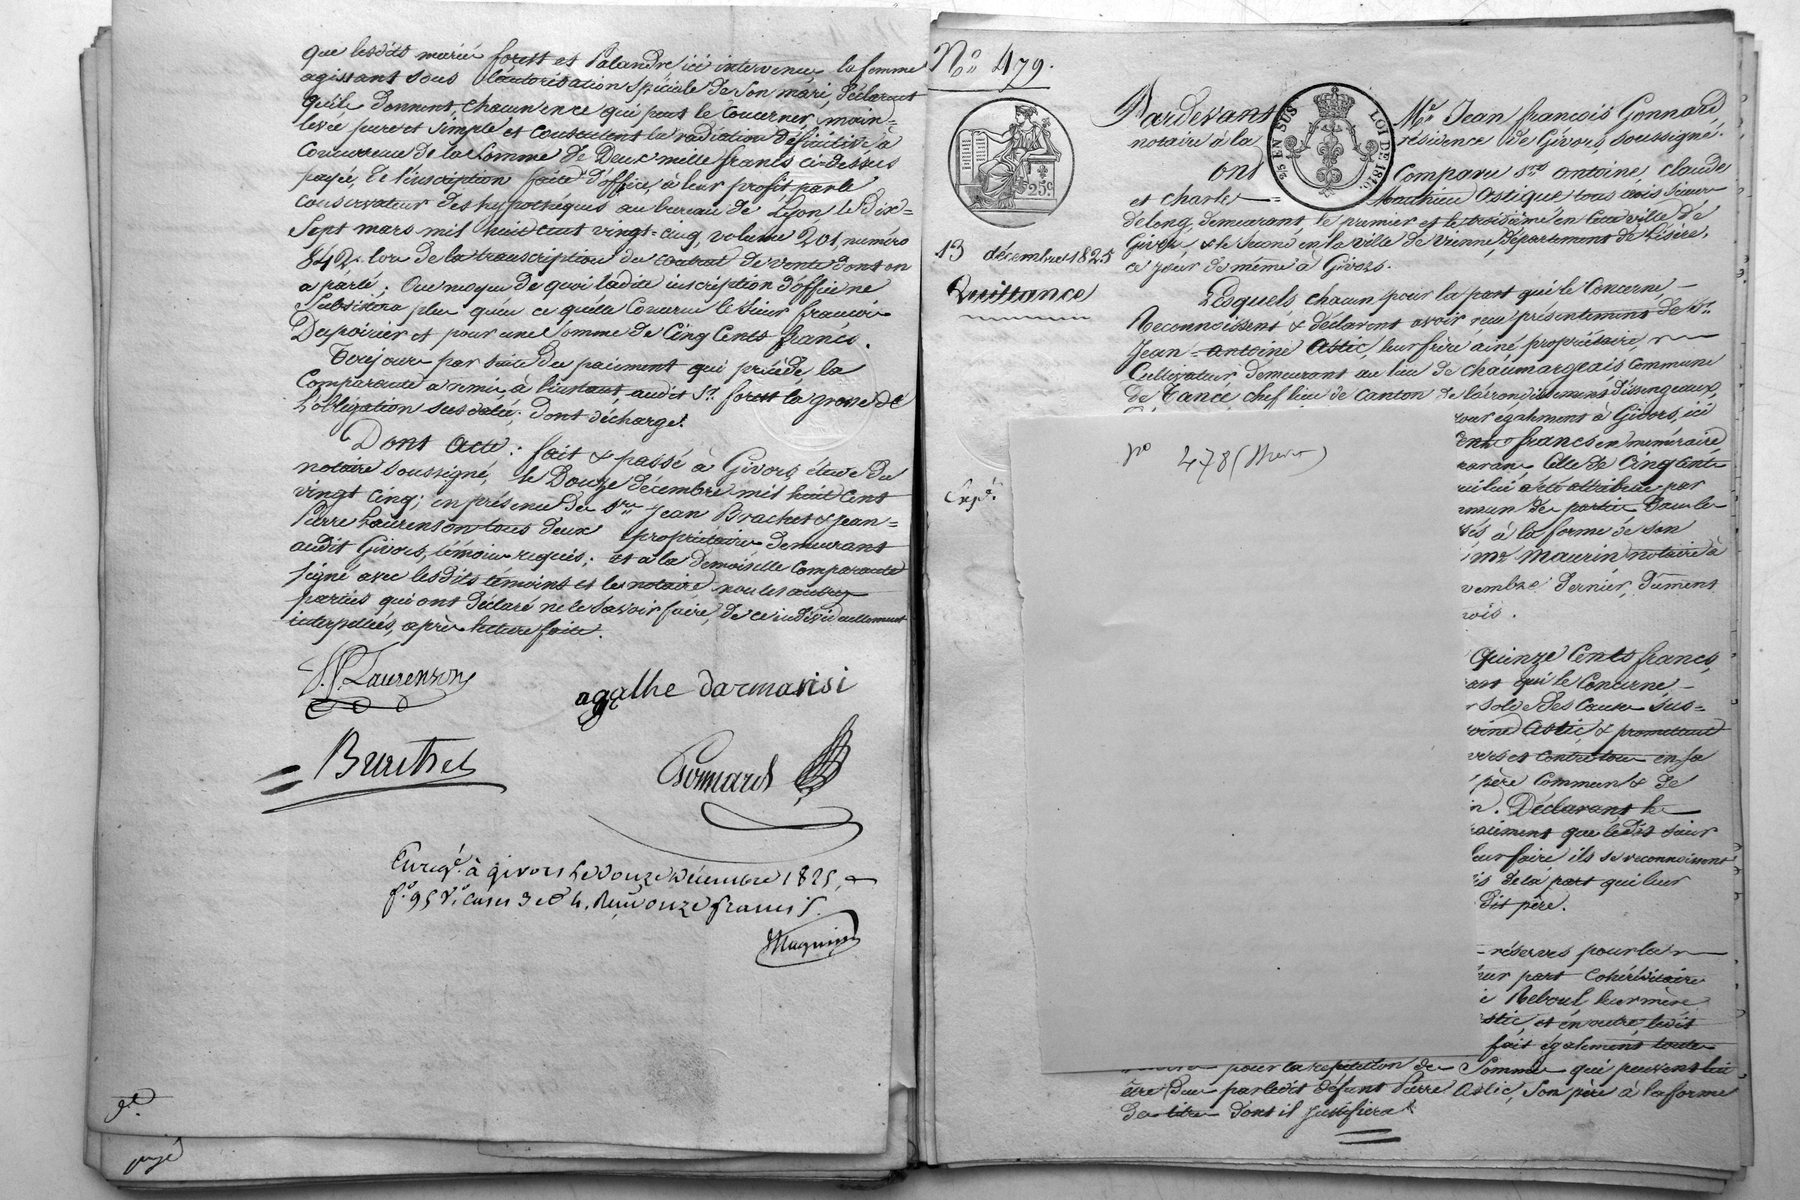 que lesdits mariés forest et Palandre ici intervenus la femme
agissant sous l'autorisation spéciale de son mari, déclarent
qu'ils donnent chacun en ce qui peut le concerner, main=
levée pure et simple et consentent la radiation définitive à
concurrence de la somme de Deux mille francs ci-dessus
payée, de l'inscription faite d'office, à leur profit par le
conservateur des hypothèques au bureau de Lyon le dix=
sept mars mil huit cent vingt-cinq, volume 201, numéro
842. lors de la transcription du contrat de vente dont on
a parlé; Au moyen de quoi ladite inscription d'office ne
subsistera plus qu'en ce qu'elle concerne le sieur francois
Despoirier et pour une somme de Cinq Cents francs.
Toujours par suite du paiement qui précède, la
comparante a remis, à l'instant, audit Sr. forest la grosse de
l'obligation sus datée; dont décharge.
Dont acte: fait & passé à Givors, étude du
notaire soussigné, le Douze décembre mil huit cent
vingt cinq; en présence de Srs Jean Brachet & Jean=
Pierre Laurenson tous deux propriétaires demeurant
audit Givors, témoins requis; et a la demoiselle comparante
signé avec lesdits témoins et le notaire, non les autres
parties qui ont déclaré ne le savoir faire, de ce individuellement
interpellées, après lecture faite.
J. P. Laurenson
agathe darmanisi
Brachet
Gonnard
Enregé. à givors le douze décembre 1825,
fo. 95 Vo. cases 3 et 4. Reçu onze francs
Magnin
No. 479.
25c
25 EN SUS
LOI DE 1816.
Pardevant Me. Jean françois Gonnard
notaire à la résidence de Givors, soussigné.
ont comparu Srs. antoine, claude
et charles = Matthieu Astique tous trois scieurs
de long, demeurant, le premier et le troisième en cette ville de
Givors, & le second en la ville de Vienne, département de l'isère,
ce jour de même à Givors.
13 décembre 1825
Quittance
Lesquels chacun pour la part qui le concerne —
Reconnoissent & déclarent avoir reçu présentement de Sr.
Jean-antoine Astic, leur frère ainé propriétaire
Cultivateur demeurant au lieu de chaumargeais, commune
de Tancé, chef lieu de canton de l'arrondissement d'issengeaux,
jour également à Givors, ici
francs en numéraire
celle de Cinq Cents
qui lui a été attribuée par
de partie dans les
à la forme de son
Me. Maurin notaire à
vembre dernier, dûment
No 478
Expé.
Quinze Cents francs,
qui le concerne, —
solde des causes sus=
Astic & promettant
vers et contre tous en sa
père commun & de
Déclarant le
aiement que ledit sieur
leur faire ils se reconnoissent
de la part qui leur
dit père.
réserves pour la
leur part cohéréditaire
Reboul leur mère
Astic, et en outre, ledit
fait également toute
pour la répétition de sommes qui peuvent lui
être dues par ledit défunt Pierre Astic, son père à la forme
de titres dont il justifiera